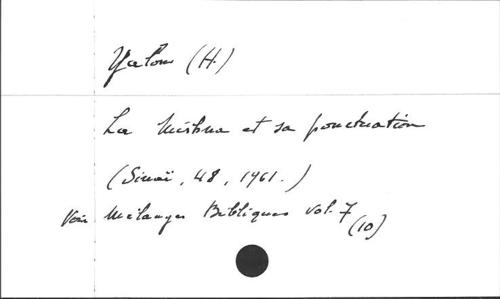 Yalon (H.)
La Mishna et sa ponctuation
(Sinaï, 48, 1961.)
Voir Mélanges Bibliques vol. 7
(10)